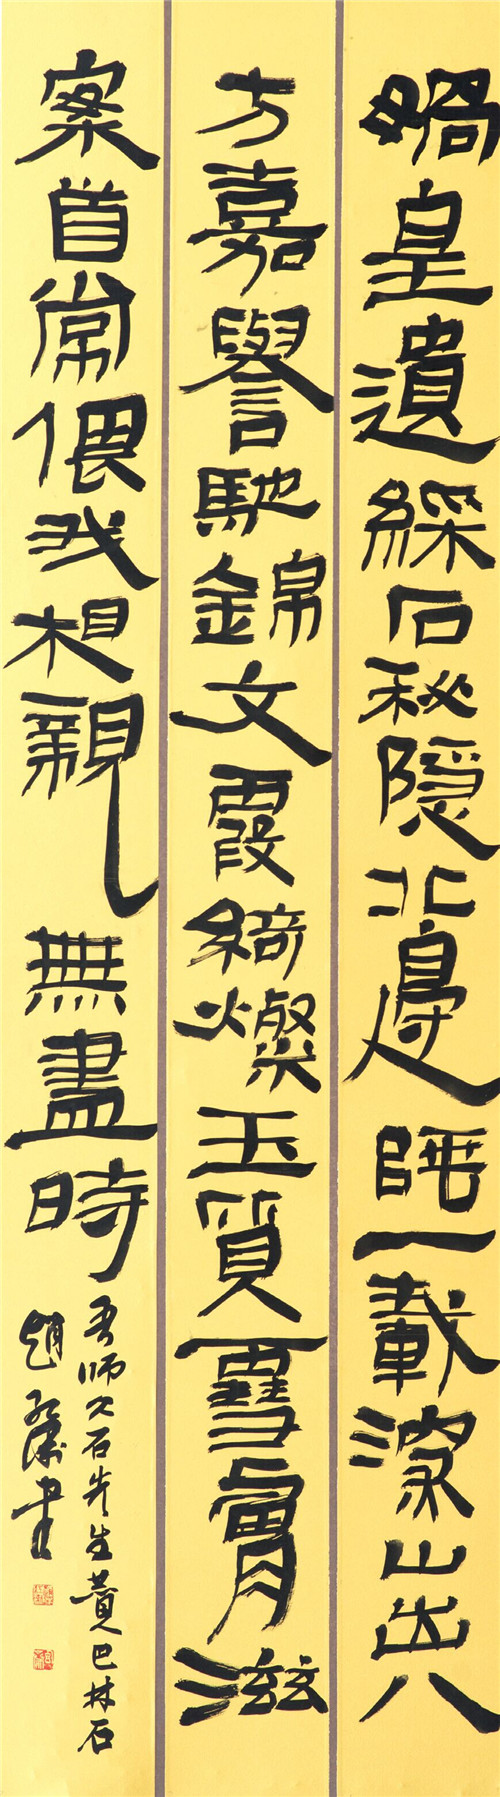 媧皇遺綵石秘隱北邊陲一載深山出八
方嘉譽馳錦文霞綺燦玉質雪膚滋
案首常偎我相親無盡時
吾師久石先生贊巴林石
趙書